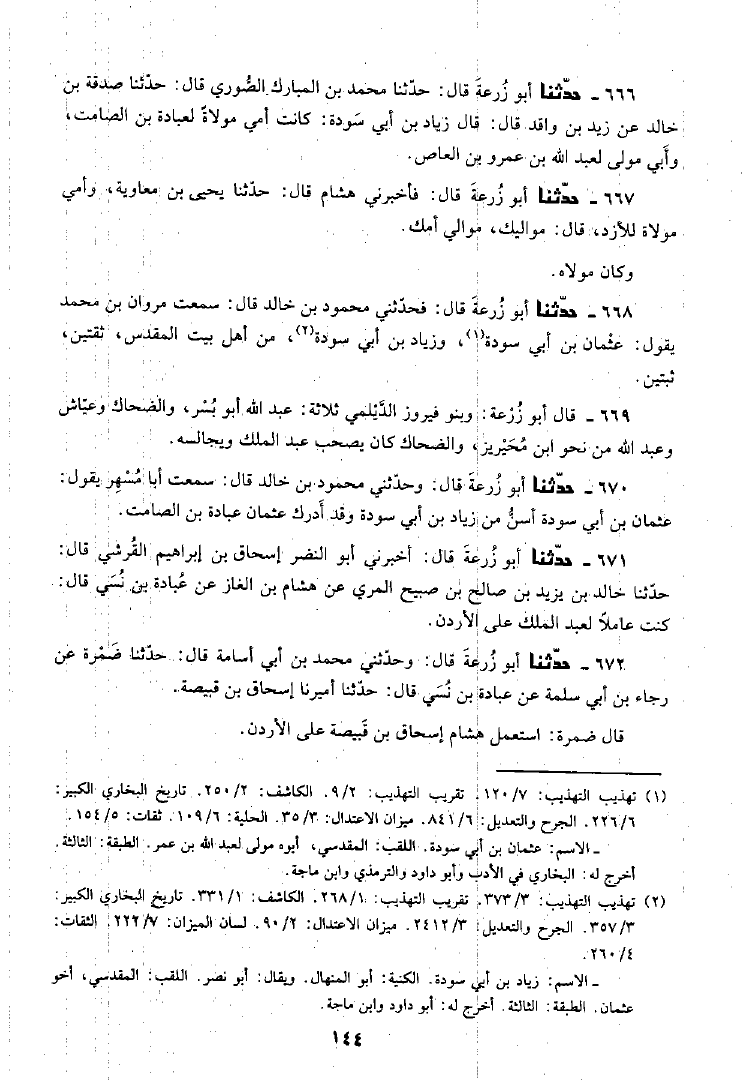 ٦٦٦ ـ حدّثنا أبو زُرعةَ قال: حدّثنا محمد بن المبارك الصُّوري قال: حدّثنا صدقة بن
خالد عن زيد بن واقد قال: قال زياد بن أبي سَودة: كانت أمي مولاةً لعبادة بن الصامت،
وأَبي مولى لعبد الله بن عمرو بن العاص.
٦٦٧ ـ حدّثنا أبو زُرعةَ قال: فأخبرني هشام قال: حدّثنا يحيى بن معاوية، وأمي
مولاة للأزد، قال: مواليك، موالي أمك.
وكان مولاه.
٦٦٨ ـ حدّثنا أبو زُرعةَ قال: فحدّثني محمود بن خالد قال: سمعت مروان بن محمد
يقول: عثمان بن أبي سودة(١)، وزياد بن أبي سودة(٢)، من أهل بيت المقدس، ثقتين،
ثبتين.
٦٦٩ ـ قال أبو زُرْعة: وبنو فيروز الدَّيْلمي ثلاثة: عبد الله أبو بُسْر، والضحاك وعيّاش
وعبد الله من نحو ابن مُحَيْريز، والضحاك كان يصحب عبد الملك ويجالسه.
٦٧٠ ـ حدّثنا أبو زُرعةَ قال: وحدّثني محمود بن خالد قال: سمعت أبا مُسْهِر يقول:
عثمان بن أبي سودة أسنُّ من زياد بن أبي سودة وقد أدرك عثمان عبادة بن الصامت.
٦٧١ ـ حدّثنا أبو زُرعةَ قال: أخبرني أبو النضر إسحاق بن إبراهيم القُرشي قال:
حدّثنا خالد بن يزيد بن صالح بن صبيح المري عن هشام بن الغاز عن عُبادة بن نُسَي قال:
كنت عاملًا لعبد الملك على الأردن.
٦٧٢ ـ حدّثنا أبو زُرعةَ قال: وحدّثني محمد بن أبي أسامة قال: حدّثنا ضَمْرة عن
رجاء بن أبي سلمة عن عبادة بن نُسَي قال: حدّثنا أميرنا إسحاق بن قبيصة.
قال ضمرة: استعمل هشام إسحاق بن قَبيصة على الأردن.
(١) تهذيب التهذيب: ١٢٠/٧. تقريب التهذيب: ٩/٢. الكاشف: ٢٥٠/٢. تاريخ البخاري الكبير:
٢٢٦/٦. الجرح والتعديل: ٨٤١/٦. ميزان الاعتدال: ٣٥/٣. الحلية: ١٠٩/٦. ثقات: ١٥٤/٥.
ـ الاسم: عثمان بن أبي سودة. اللقب: المقدسي، أبوه مولى لعبد الله بن عمر. الطبقة: الثالثة.
أخرج له: البخاري في الأدب وأبو داود والترمذي وابن ماجة.
(٢) تهذيب التهذيب: ٣٧٣/٣. تقريب التهذيب: ٢٦٨/١. الكاشف: ٣٣١/١. تاريخ البخاري الكبير:
٣٥٧/٣. الجرح والتعديل: ٢٤١٢/٣. ميزان الاعتدال: ٩٠/٢. لسان الميزان: ٢٢٢/٧. الثقات:
٢٦٠/٤.
ـ الاسم: زياد بن أبي سودة. الكنية: أبو المنهال. ويقال: أبو نصر. اللقب: المقدسي، أخو
عثمان. الطبقة: الثالثة. أخرج له: أبو داود وابن ماجة.
١٤٤